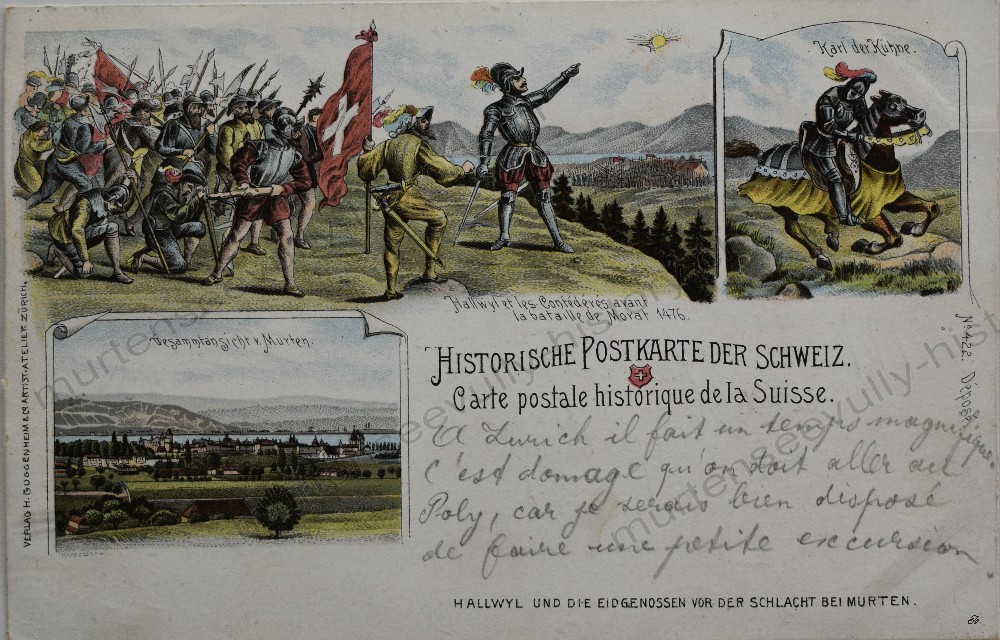 Karl der Kühne.
Hallwyl et les Confédérés avant
la bataille de Morat 1476.
Gesammtansicht v. Murten.
HISTORISCHE POSTKARTE DER SCHWEIZ.
Carte postale historique de la Suisse.
A Zurich il fait un temps magnifique.
c'est domage qu'on doit aller au
Poly, car je serais bien disposé
de faire une petite excursion
HALLWYL UND DIE EIDGENOSSEN VOR DER SCHLACHT BEI MURTEN.
VERLAG H. GUGGENHEIM & Co ARTIST. ATELIER ZÜRICH.
No 1422. Déposé
murtenseevully-hist